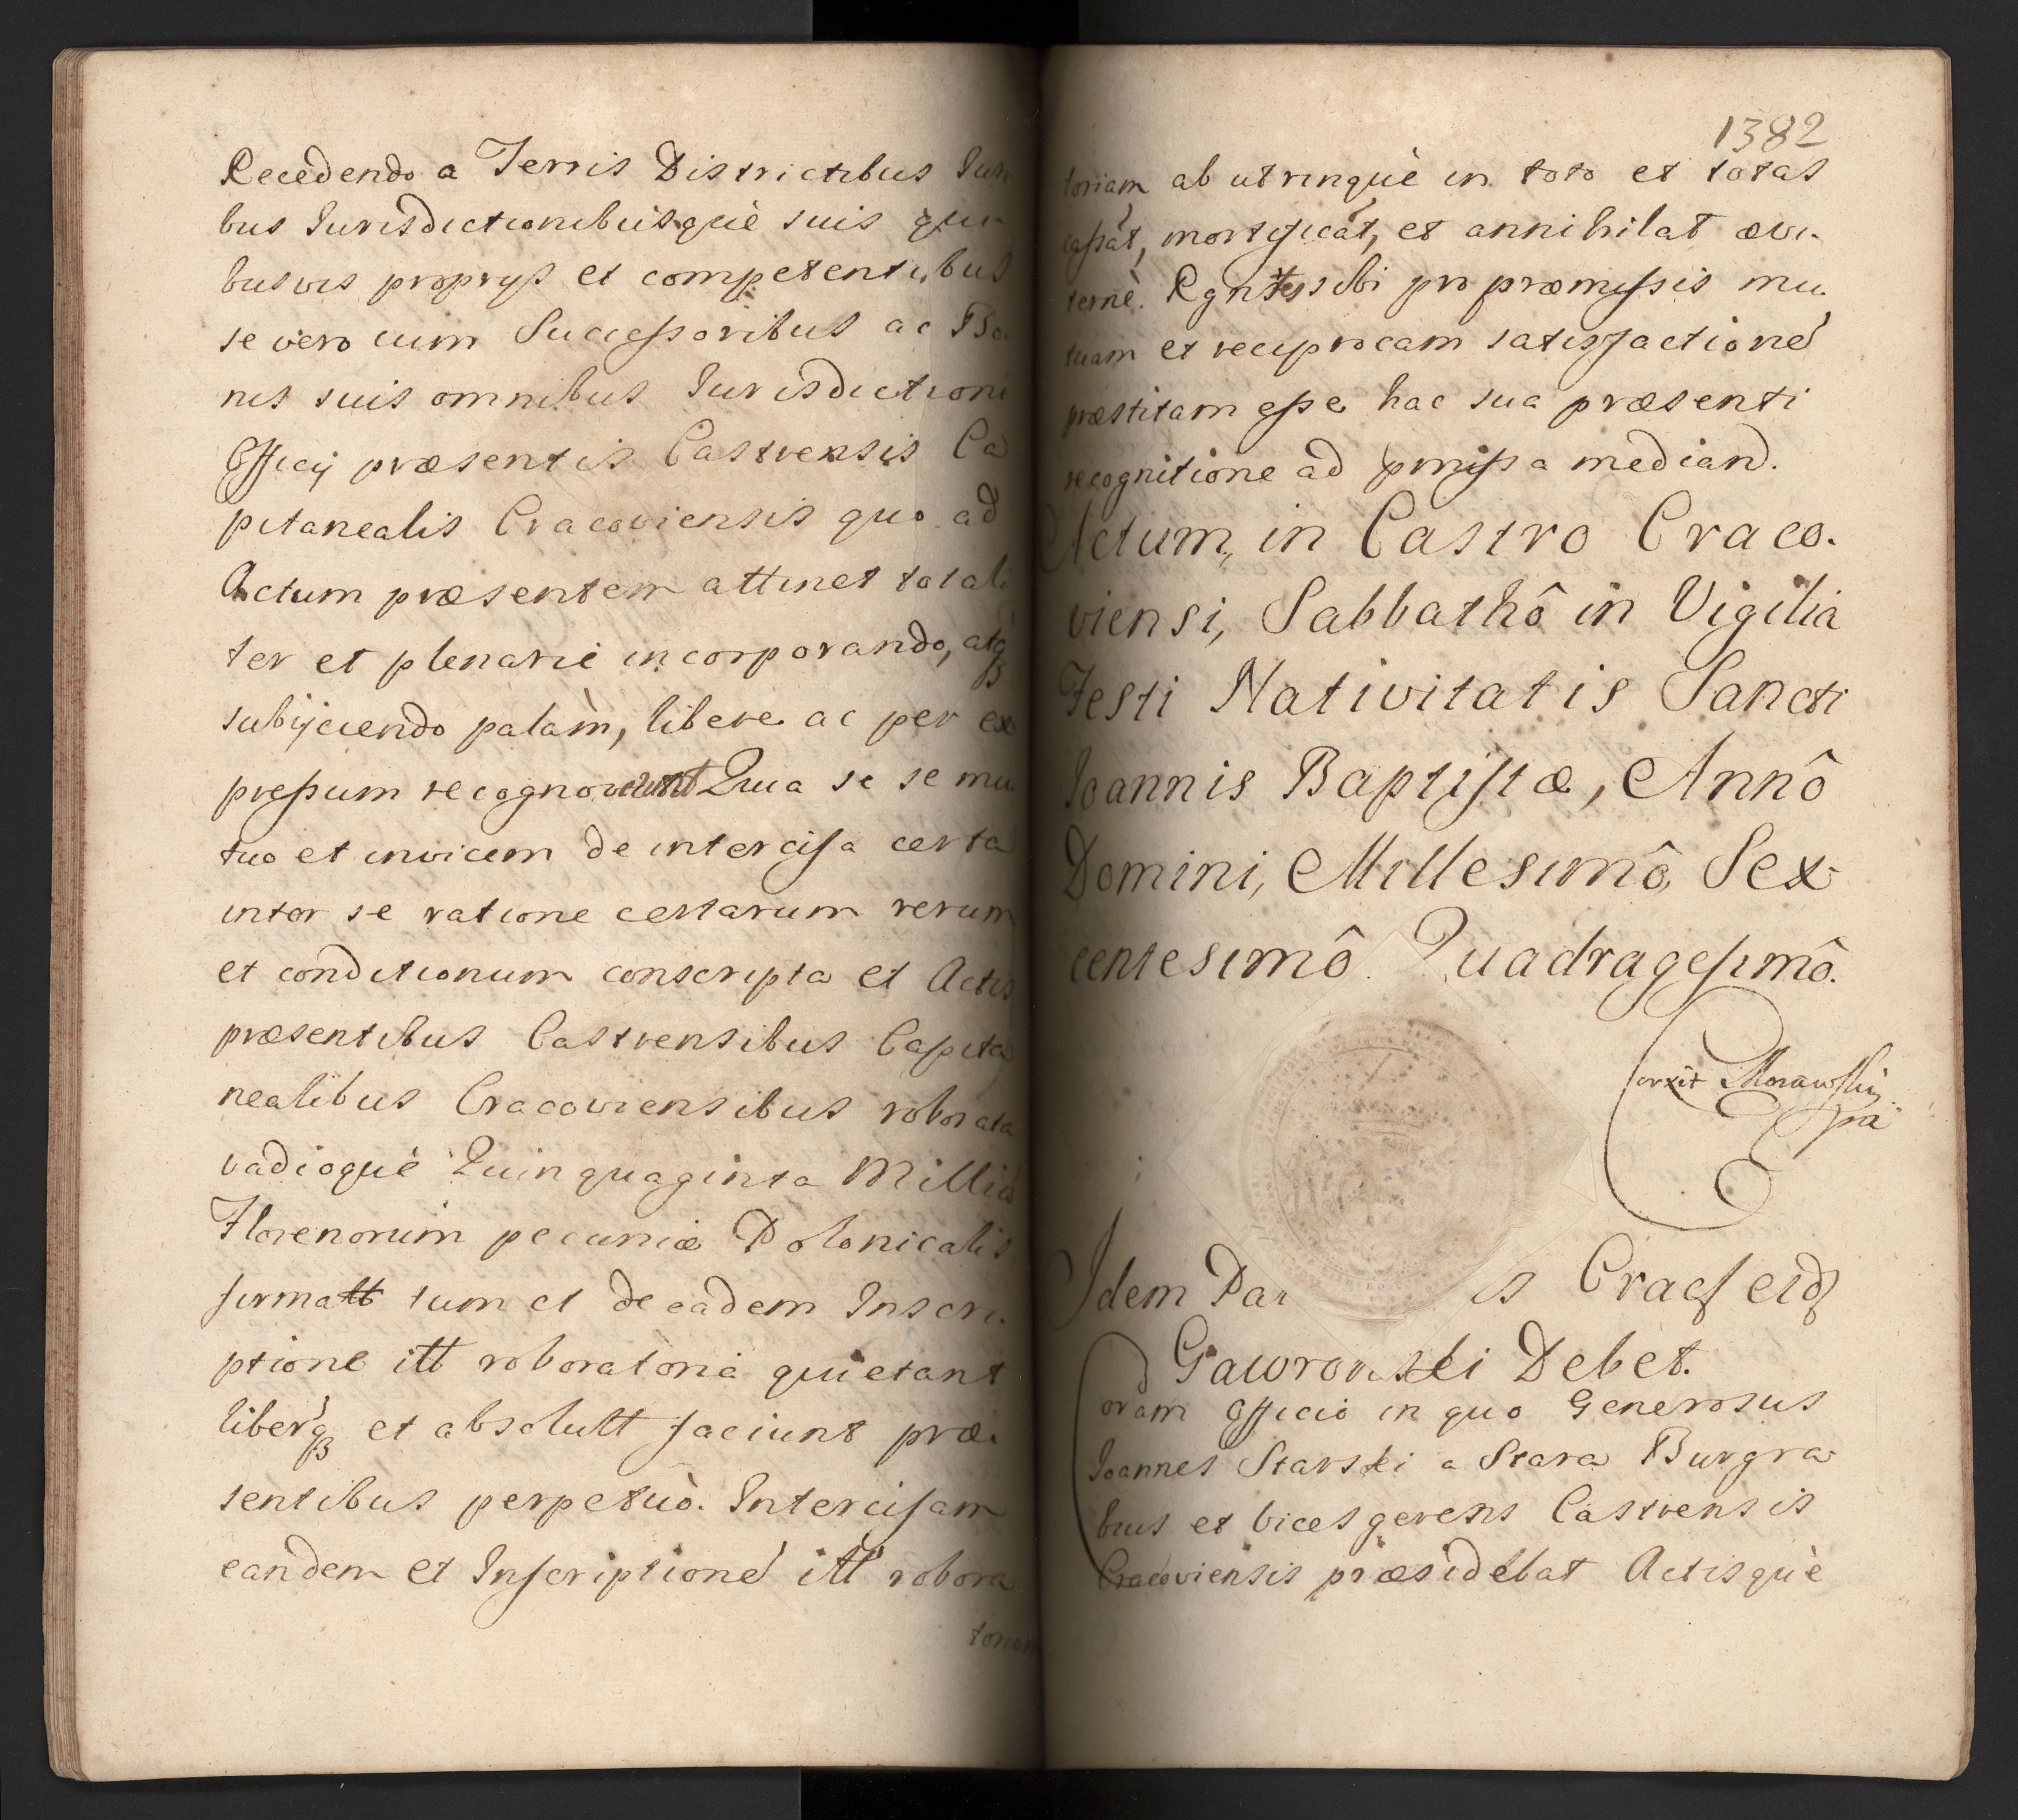 Recedendo a Terris Districtibus Iuri
bus Iurisdictionibusquè suis qui
busvis proprijs et competentibus
se vero cum Successoribus ac Bo
nis suis omnibus Iurisdictioni
Officij præsentis Castrensis Ca
pitanealis Cracoviensis quo ad
Actum præsentem attinet totali
ter et plenarie incorporando, atq
subijciendo palàm, libere ac per ex
pressum recognoverunt Quia se se mu
tuo et invicem de intercisa certa
inter se ratione certarum rerum
et conditionum conscripta et Actis
præsentibus Castrensibus Capita
nealibus Cracoviensibus roborata
vadioquè Quinquaginta Millia
Florenorum pecuniæ Polonicalis
firmatt tum et de eadem Inscri
ptione itt roboratoria quietant
liberq et absolutt faciunt præ
sentibus perpetuò. Intercisam
eandem et Inscriptioné itt robora
toriam
1382
toriam ab utrinquè in toto et totas
cassat, mortificat, et annihilat ævi
ternè. Rgntes sibi pro præmissis mu
tuam et reciprocam satisfactioné
præstitam esse hac sua præsenti
recognitione ad pmissa mediand.
Actum, in Castro Craco.
viensi, Sabbathô in Vigilia
Festi Nativitatis Sancti
Ioannis Baptistæ, Annô
Domini, Millesimô, Sex
centesimô Quadragesimô.
Morawski
Idem Par is Cracf eid
Gawronski Debet.
Coram Officio in quo Generosus
Ioannes Starski a Stara Burgra
bius et vices gerens Castrensis
Cracoviensis præsidebat Actisquè